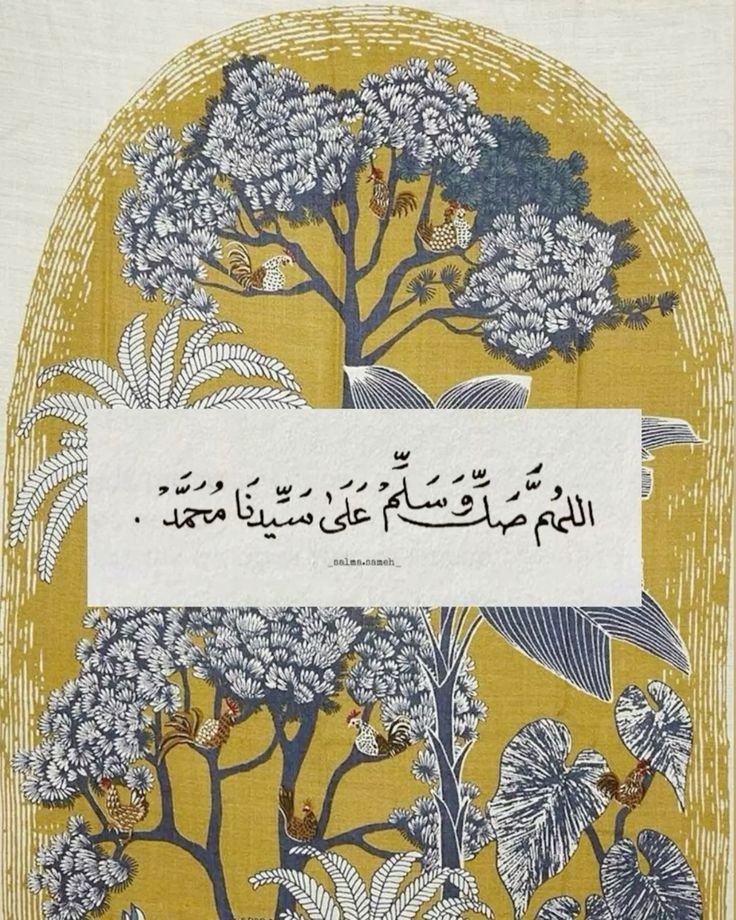 اللهُمَّ صَلِّ وَسَلِّمْ عَلَىٰ سَيِّدِنَا مُحَمَّدْ .
_salma.sameh_